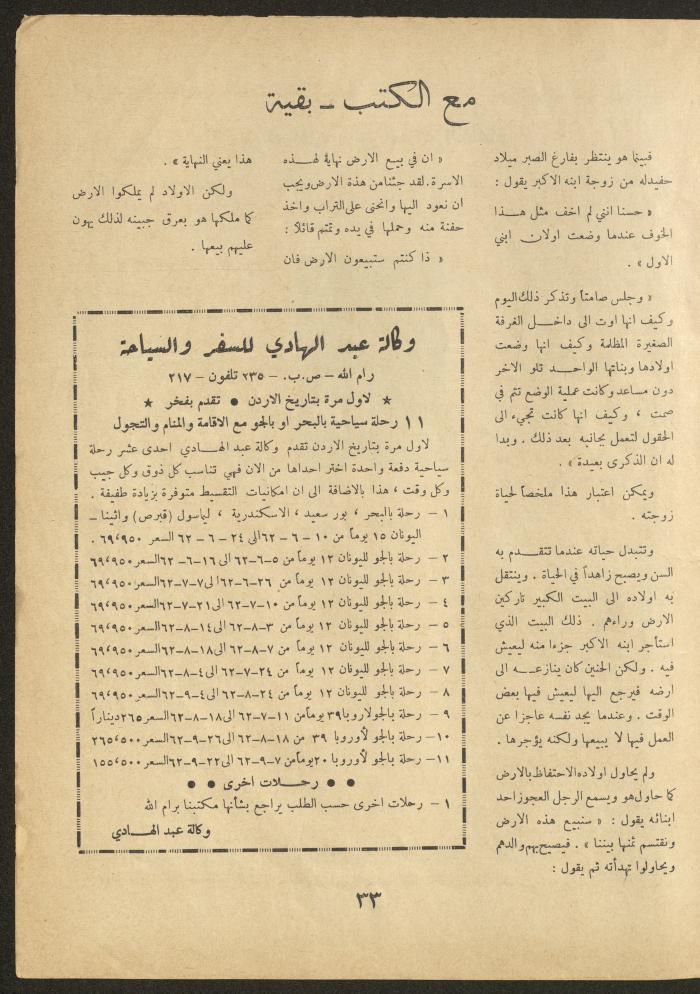 مع الكتب ـ بقية
فبينما هو ينتظر بفارغ الصبر ميلاد
حفيدله من زوجة ابنه الاكبر يقول :
« حسنا انني لم اخف مثل هذا
الخوف عندما وضعت اولان ابني
الاول » .
« وجلس صامتاً وتذكر ذلك اليوم
وكيف انها اوت الى داخل الغرفة
الصغيرة المظلمة وكيف انها وضعت
اولادها وبناتها الواحد تلو الاخر
دون مساعد وكانت عملية الوضع تتم في
صمت ، وكيف انها كانت تجيء الى
الحقول لتعمل بجانبه بعد ذلك . وبدا
له ان الذكرى بعيدة » .
ويمكن اعتبار هذا ملخصاً لحياة
زوجته .
وتتبدل حياته عندما تتقدم به
السن ويصبح زاهداً في الحياة . وينتقل
به اولاده الى البيت الكبير تاركين
الارض وراءهم . ذلك البيت الذي
استأجر ابنه الاكبر جزءا منه ليعيش
فيه . ولكن الحنين كان ينازعه الى
ارضه فيرجع اليها ليعيش فيها بعض
الوقت . وعندما يجد نفسه عاجزا عن
العمل فيها لا يبيعها ولكنه يؤجرها .
ولم يحاول اولاده الاحتفاظ بالارض
كما حاول هو ويسمع الرجل العجوز احد
ابنائه يقول : « سنبيع هذه الارض
ونقتسم ثمنها بيننا » . فيصيح بهم والدهم
ويحاولوا تهدأته ثم يقول :
« ان في بيع الارض نهاية لهذه
الاسرة. لقد جئنا من هذة الارض ويجب
ان نعود اليها وانحنى على التراب واخذ
حفنة منه وحملها في يده وتمتم قائلاً :
« ذا كنتم ستبيعون الارض فان
هذا يعني النهاية » .
ولكن الاولاد لم يملكوا الارض
كما ملكها هو بعرق جبينه لذلك يهون
عليهم بيعها .
وكالة عبد الهادي للسفر والسياحة
رام الله – ص.ب. – ٢٣٥ تلفون – ٢١٧
★ لاول مرة بتاريخ الاردن ● تقدم بفخر ★
١١ رحلة سياحية بالبحر او بالجو مع الاقامة والمنام والتجول
لاول مرة بتاريخ الاردن تقدم وكالة عبد الهادي احدى عشر رحلة
سياحية دفعة واحدة اختر احداها من الان فهي تناسب كل ذوق وكل جيب
وكل وقت ، هذا بالاضافة الى ان امكانيات التقسيط متوفرة بزيادة طفيفة .
١ – رحلة بالبحر ، بور سعيد ، الاسكندرية ، لياسول (قبرص) واثينا –
اليونان ١٥ يوماً من ١٠ – ٦ – ٦٢ الى ٢٤ – ٦ – ٦٢ السعر ٦٩،٩٥٠ .
٢ – رحلة بالجو لليونان ١٢ يوماً من ٥–٦–٦٢ الى ١٦–٦–٦٢ السعر ٦٩،٩٥٠
٣ – رحلة بالجو لليونان ١٢ يوماً من ٢٦–٦–٦٢ الى ٧–٧–٦٢ السعر ٦٩،٩٥٠
٤ – رحلة بالجو لليونان ١٢ يوماً من ١٠–٧–٦٢ الى ٢١–٧–٦٢ السعر ٦٩،٩٥٠
٥ – رحلة بالجو لليونان ١٢ يوماً من ٣–٨–٦٢ الى ١٤–٨–٦٢ السعر ٦٩،٩٥٠
٦ – رحلة بالجو لليونان ١٢ يوماً من ٧–٨–٦٢ الى ١٨–٨–٦٢ السعر ٦٩،٩٥٠
٧ – رحلة بالجو لليونان ١٢ يوماً من ٢٤–٧–٦٢ الى ٤–٨–٦٢ السعر ٦٩،٩٥٠
٨ – رحلة بالجو لليونان ١٢ يوماً من ٢٤–٨–٦٢ الى ٤–٩–٦٢ السعر ٦٩،٩٥٠
٩ – رحلة بالجو لاروبا ٣٩ يوماً من ١١–٧–٦٢ الى ١٨–٨–٦٢ السعر ٢٦٥ ديناراً
١٠– رحلة بالجو لأوروبا ٣٩ من ١٨–٨–٦٢ الى ٢٦–٩–٦٢ السعر ٢٦٥،٥٠٠
١١– رحلة بالجو لأوروبا ٢٠ يوماً من ٧–٩–٦٢ الى ٢٢–٩–٦٢ السعر ١٥٥،٥٠٠
● ● رحلات اخرى ● ●
١ – رحلات اخرى حسب الطلب يراجع بشأنها مكتبنا برام الله
وكالة عبد الهادي
٣٣